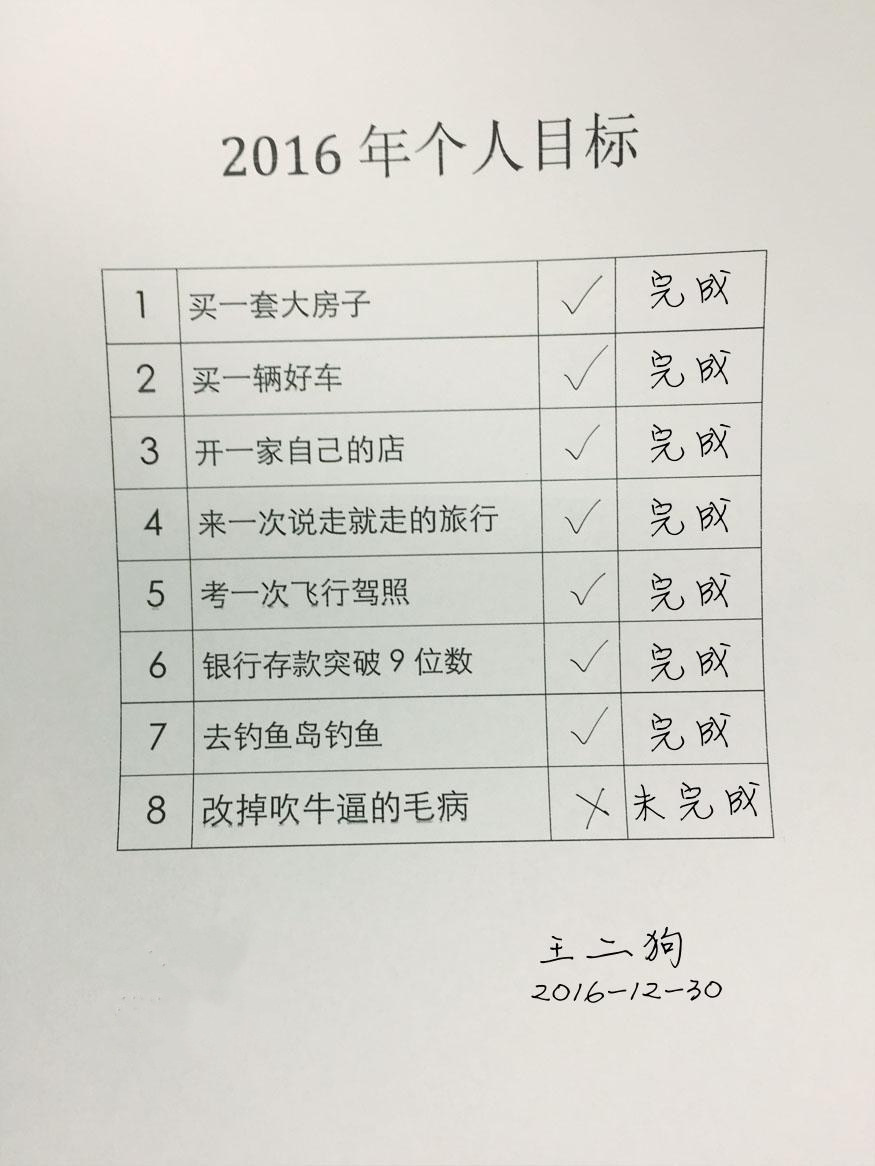 2016 年个人目标
1 买一套大房子 ✓ 完成
2 买一辆好车 ✓ 完成
3 开一家自己的店 ✓ 完成
4 来一次说走就走的旅行 ✓ 完成
5 考一次飞行驾照 ✓ 完成
6 银行存款突破 9 位数 ✓ 完成
7 去钓鱼岛钓鱼 ✓ 完成
8 改掉吹牛逼的毛病 ✗ 未完成
王二狗
2016-12-30